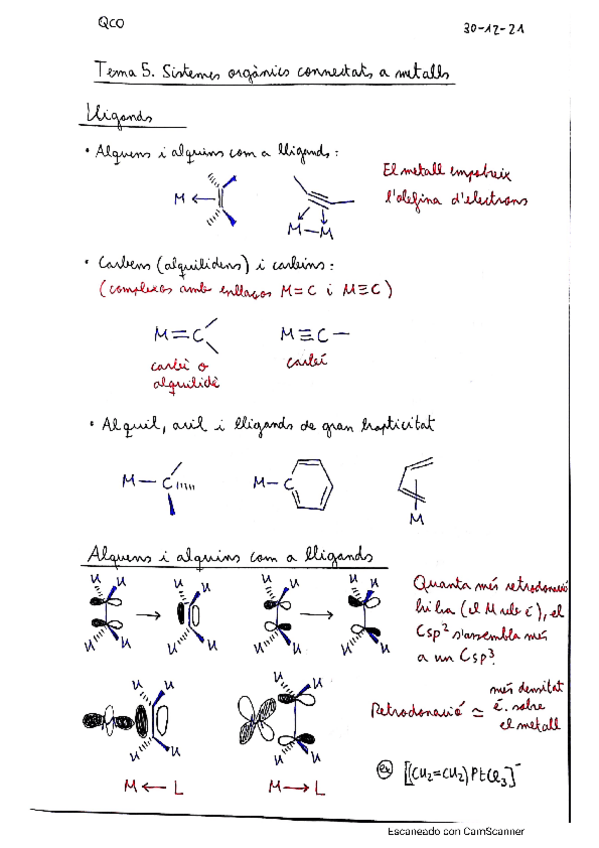 QCO
30-12-21
Tema 5. Sistemes orgànics connectats a metalls
Lligands
• Alquens i alquins com a lligands:
El metall empobreix
l'olefina d'electrons
M
M—M
• Carbens (alquilidens) i carbins:
(complexos amb enllaços M=C i M≡C)
M=C
M≡C—
carbè o
alquilidè
carbí
• Alquil, aril i lligands de gran hapticitat
M—C
M—C
M
Alquens i alquins com a lligands
H H H H H H H H
H H H H H H H H
Quanta més retrodonació
hi ha (el M rep ē), el
Csp² s'assembla més
a un Csp³.
H H H H
M M
H H H H
Retrodonació ≃ més densitat
ē. sobre
el metall
M ← L
M → L
ex [(CH₂=CH₂)PtCl₃]⁻
Escaneado con CamScanner